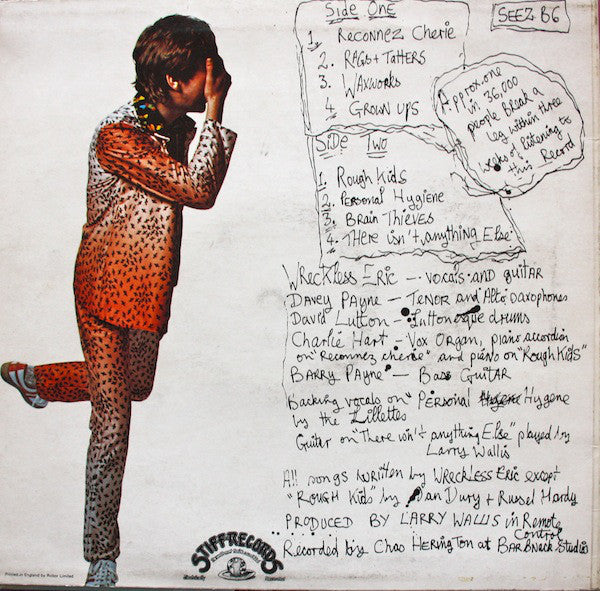 Side One
SEEZ B6
1. Reconnez Cherie
2. Rags + Tatters
3. Waxworks
4. Grown ups
Approx. one
in 36,000
people Break a
leg within three
weeks of listening to
this Record
Side Two
1. Rough Kids
2. Personal Hygiene
3. Brain Thieves
4. There isn't anything Else
Wreckless Eric — vocals and guitar
Davey Payne — Tenor and Alto Saxophones
David Lutton — Luttonesque drums
Charlie Hart — Vox Organ, piano accordion
on "reconnez cherie" and piano on "Rough Kids"
Barry Payne — Bass Guitar
Backing vocals on "Personal Hygene Hygene
by the Lillettes
Guiter on "There isn't anything Else" played by
Larry Wallis
All songs written by Wreckless Eric except
"Rough Kids" by Ian Dury + Russel Hardy
PRODUCED BY LARRY WALLIS in Remote
Control
Recorded by Chas Herington at Barbnack Studio
STIFF RECORDS
Printed in England by Robor Limited